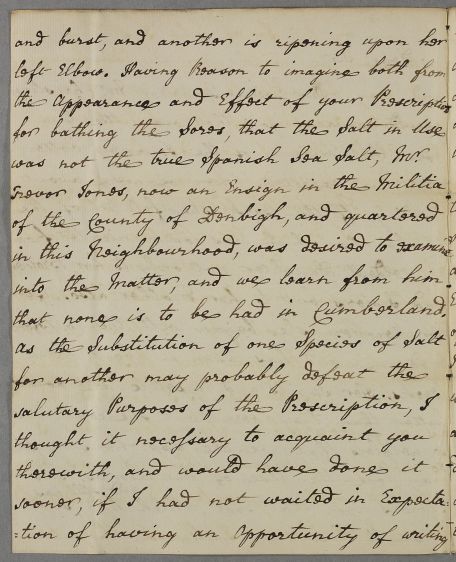 and burst, and another is ripening upon her
left Elbow. Having Reason to imagine both from
the Appearance and Effect of your Prescription
for bathing the Sores, that the Salt in Use
was not the true Spanish Sea Salt, Mr.
Trevor Jones, now an Ensign in the Militia
of the County of Denbigh, and quartered
in this Neighbourhood, was desired to examine
into the Matter, and we learn from him
that none is to be had in Cumberland.
as the Substitution of one Species of Salt
for another may probably defeat the
salutary Purposes of the Prescription, I
thought it necessary to acquaint you
therewith, and would have done it
sooner, if I had not waited in Expecta
=tion of having an Opportunity of writing